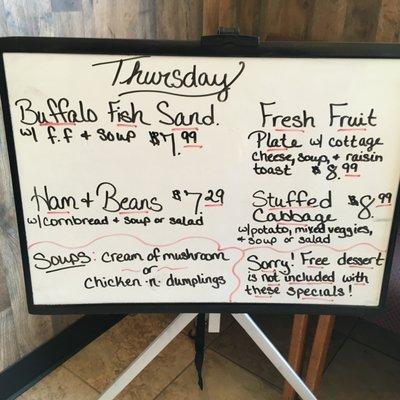 Thursday
Buffalo Fish Sand.
w/ f.f + soup $7.99
Ham + Beans $7.29
w/cornbread + soup or salad
Fresh Fruit
Plate w/ cottage
cheese, soup, + raisin
toast $8.99
Stuffed $8.99
Cabbage
w/potato, mixed veggies,
+ soup or salad
Soups: cream of mushroom
or
chicken -n- dumplings
Sorry! Free dessert
is not included with
these specials!